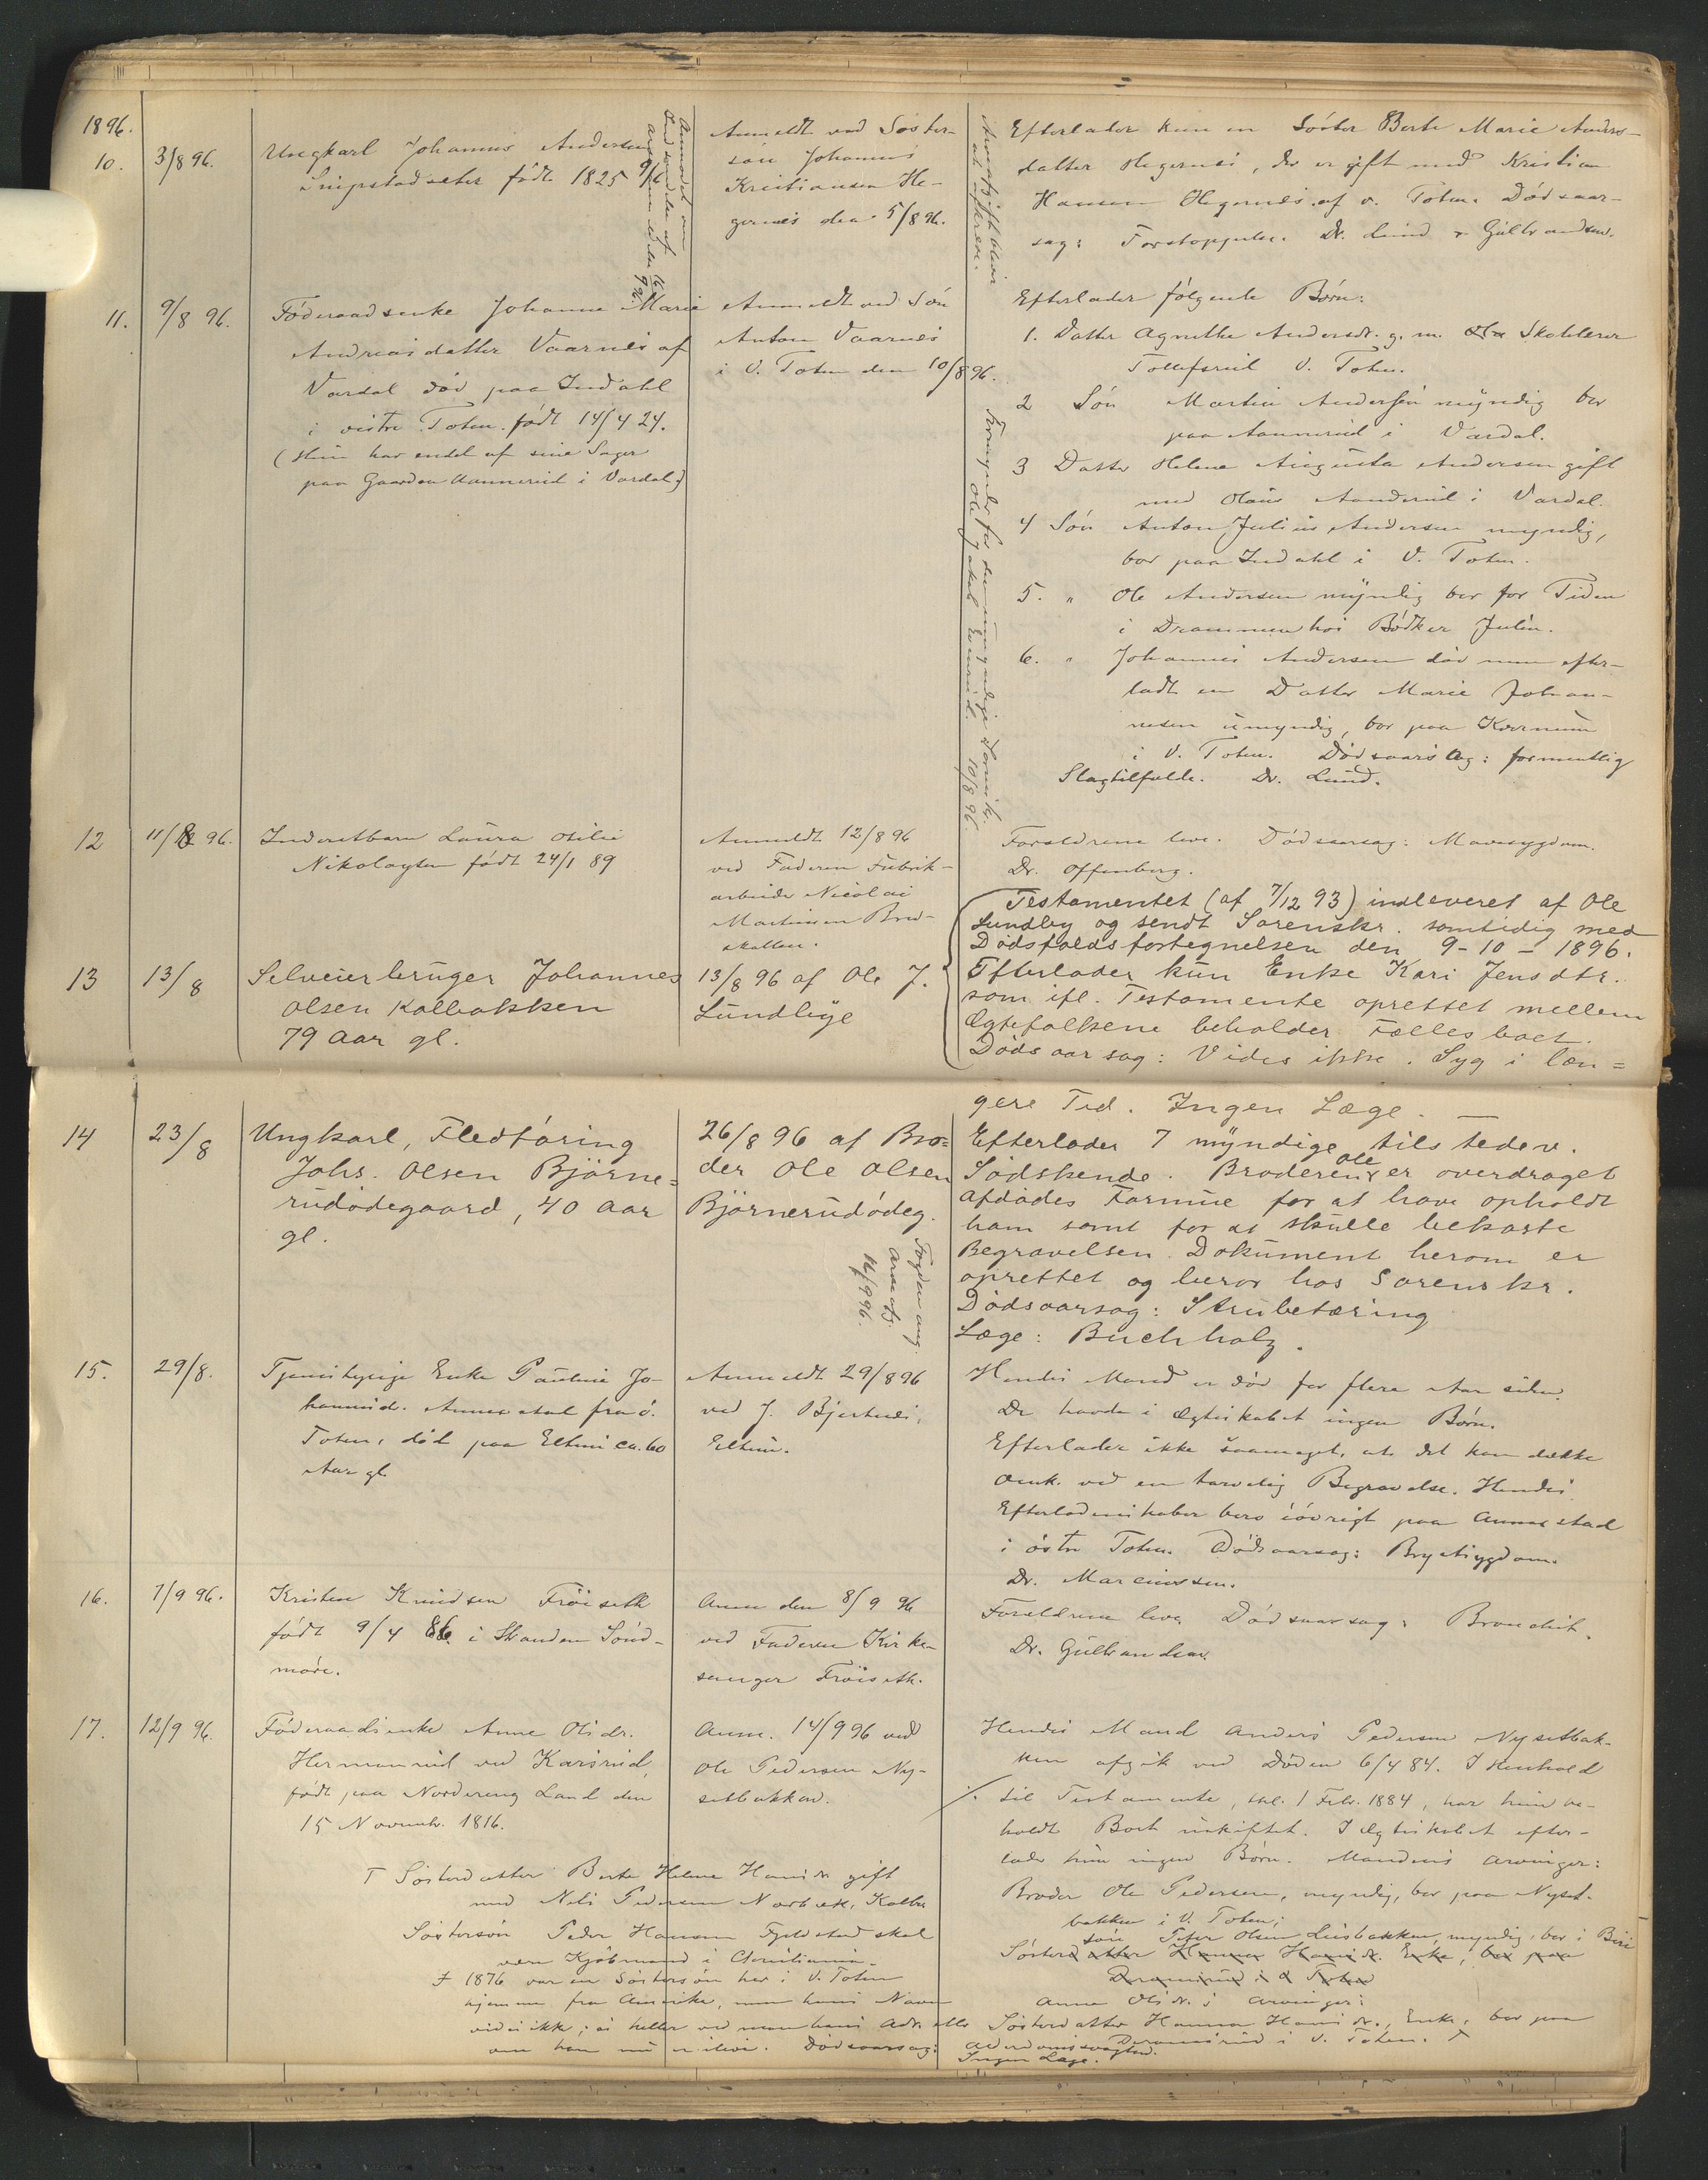 1896.
10.
3/8 96.
Ungkarl Johannes Andersen
Snipstadseter født 1825 9/6
Anmeldt ved Søster-
søn Johannes
Kristiansen He-
gernes den 5/8 96.
Efterlader kun en Søster Berte Marie Anders-
datter Hegernes, der er gift med Kristian
Hansen Hegernes af v. Toten. Dødsaar-
sag: Forstoppelse. Dr. Lund & Gulbrandsen.
11.
9/8 96.
Føderaadsenke Johanne Marie
Andreasdatter Vaarnes af
Vardal død paa Indahl
i vestre Toten. født 14/4 24.
(Hun har endel af sine Sager
paa Gaarden Aannerud i Vardal.)
Anmeldt ved Søn
Anton Vaarnes
i V. Toten den 10/8 96.
Efterlader følgende Børn:
1. Datter Agnethe Andersdr. g. m. Skolelærer
Tollefsrud V. Toten.
2 Søn Martin Andersen myndig bor
paa Aannerud i Vardal.
3 Datter Helene Augusta Andersen gift
med Olaus Aanderud i Vardal.
4 Søn Anton Julius Andersen myndig,
bor paa Indahl i V. Toten.
5. " Ole Andersen myndig bor for Tiden
i Drammen hos Bødker Julin.
6. " Johannes Andersen død men efter-
ladt en Datter Marie Johan-
nesen umyndig, bor paa Kvernum
i V. Toten. Dødsaarsag: formentlig
Slagtilfælde. Dr. Lund.
Formynder for den umyndige
Ole Jakob 10/8 96.
12
11/8 96.
Inderstbarn Laura Otilie
Nikolaysen født 24/1 89
Anmeldt 12/8 96
ved Faderen Fabrik-
arbeider Nicolai
Martinsen Bred-
skallen.
Forældrene lever. Dødsaarsag: Mavesygdom.
Dr. Offenberg.
Testamentet (af 7/12 93) indleveret af Ole
Lundby og sendt Sorenskr. samtidig med
Dødsfaldsfortegnelsen den 9-10-1896.
13
13/8
Selveierbruger Johannes
Olsen Kolbakken
79 Aar gl.
13/8 96 af Ole J.
Lundbye
Efterlader kun Enke Kari Jensdtr.
som ifl. Testamente oprettet mellem
Ægtefolkene beholder Fællesboet.
Dødsaarsag: Vides ikke. Syg i læn=
gere Tid. Ingen Læge. —
14
23/8
Ungkarl, Fledføring
Johs. Olsen Bjørne=
rudødegaard, 40 Aar
gl.
26/8 96 af Bro=
der Ole Olsen
Bjørnerudødeg.
Fogden ang.
Arveafg.
12/9 96.
Efterlader 7 myndige tilstedev.
Sødskende. Broderen Ole er overdraget
afdødes Formue for at have opholdt
ham samt for at skulle bekoste
Begravelsen. Dokument herom er
oprettet og beror hos Sorenskr.
Dødsaarsag: Strubetæring
Læge: Buchholz.
15.
29/8.
Tjenstepige Enke Pauline Jo-
hannesd. Annexstad fra ø.
Toten, død paa Eltun ca. 60
Aar gl.
Anmeldt 29/8 96
ved J. Bjertnes,
Eltun.
Hendes Mand er død for flere Aar siden.
De havde i Ægteskabet ingen Børn.
Efterlader ikke saameget, at det kan dække
Omk. ved en tarvelig Begravelse. Hendes
Efterladenskaber bero iøvrigt paa Annexstad
i østre Toten. Dødsaarsag: Brystsygdom.
Dr. Marcussen.
16.
7/9 96.
Kristen Knudsen Frøiseth
født 9/4 86. i Stranden Sønd-
møre.
Anm. den 8/9 96
ved Faderen Kirke-
sanger Frøiseth.
Forældrene leve. Dødsaarsag: Bronchit.
Dr. Gulbrandsen.
17.
12/9 96.
Føderaadsenke Anne Olsdr.
Hermanrud ved Karsrud,
født paa Nordereng Land den
15 Novemb. 1816.
Anm. 14/9 96 ved
Ole Pedersen Ny-
setbakken.
Hendes Mand Anders Pedersen Nysetbak-
ken afgik ved Døden 6/4 84. I Henhold
til Testamente, thl. 1 Febr. 1884, har hun be-
holdt Boet uskiftet. I Ægteskabet efter-
lader hun ingen Børn. Mandens Arvinger:
Broder Ole Pedersen, myndig, bor paa Nyset-
bakken i V. Toten;
søn Peter Olsen Liusbakken, myndig, bor i Biri
Søsterdatter Hanna Hansdr. Enke, bor paa
Anne Olsdr.s Arvinger:
Søsterdatter Hanna Hansdr., Enke, bor paa
Deramsrud i V. Toten. T
T Søsterdatter Berte Helene Hansdr. gift
med Nils Pedersen Norbæk, Kolbu
Søstersøn Peder Hansen Fjeldstad skal
være Kjøbmand i Christiania.
I 1876 var en Søstersøn her i V. Toten
hjemme fra Amerika, men hans Navn
vides ikke; ei heller ved man hans Adr. eller
om han nu er ilive. Dødsaarsag:
Alderdomssvaghed.
Ingen Læge.